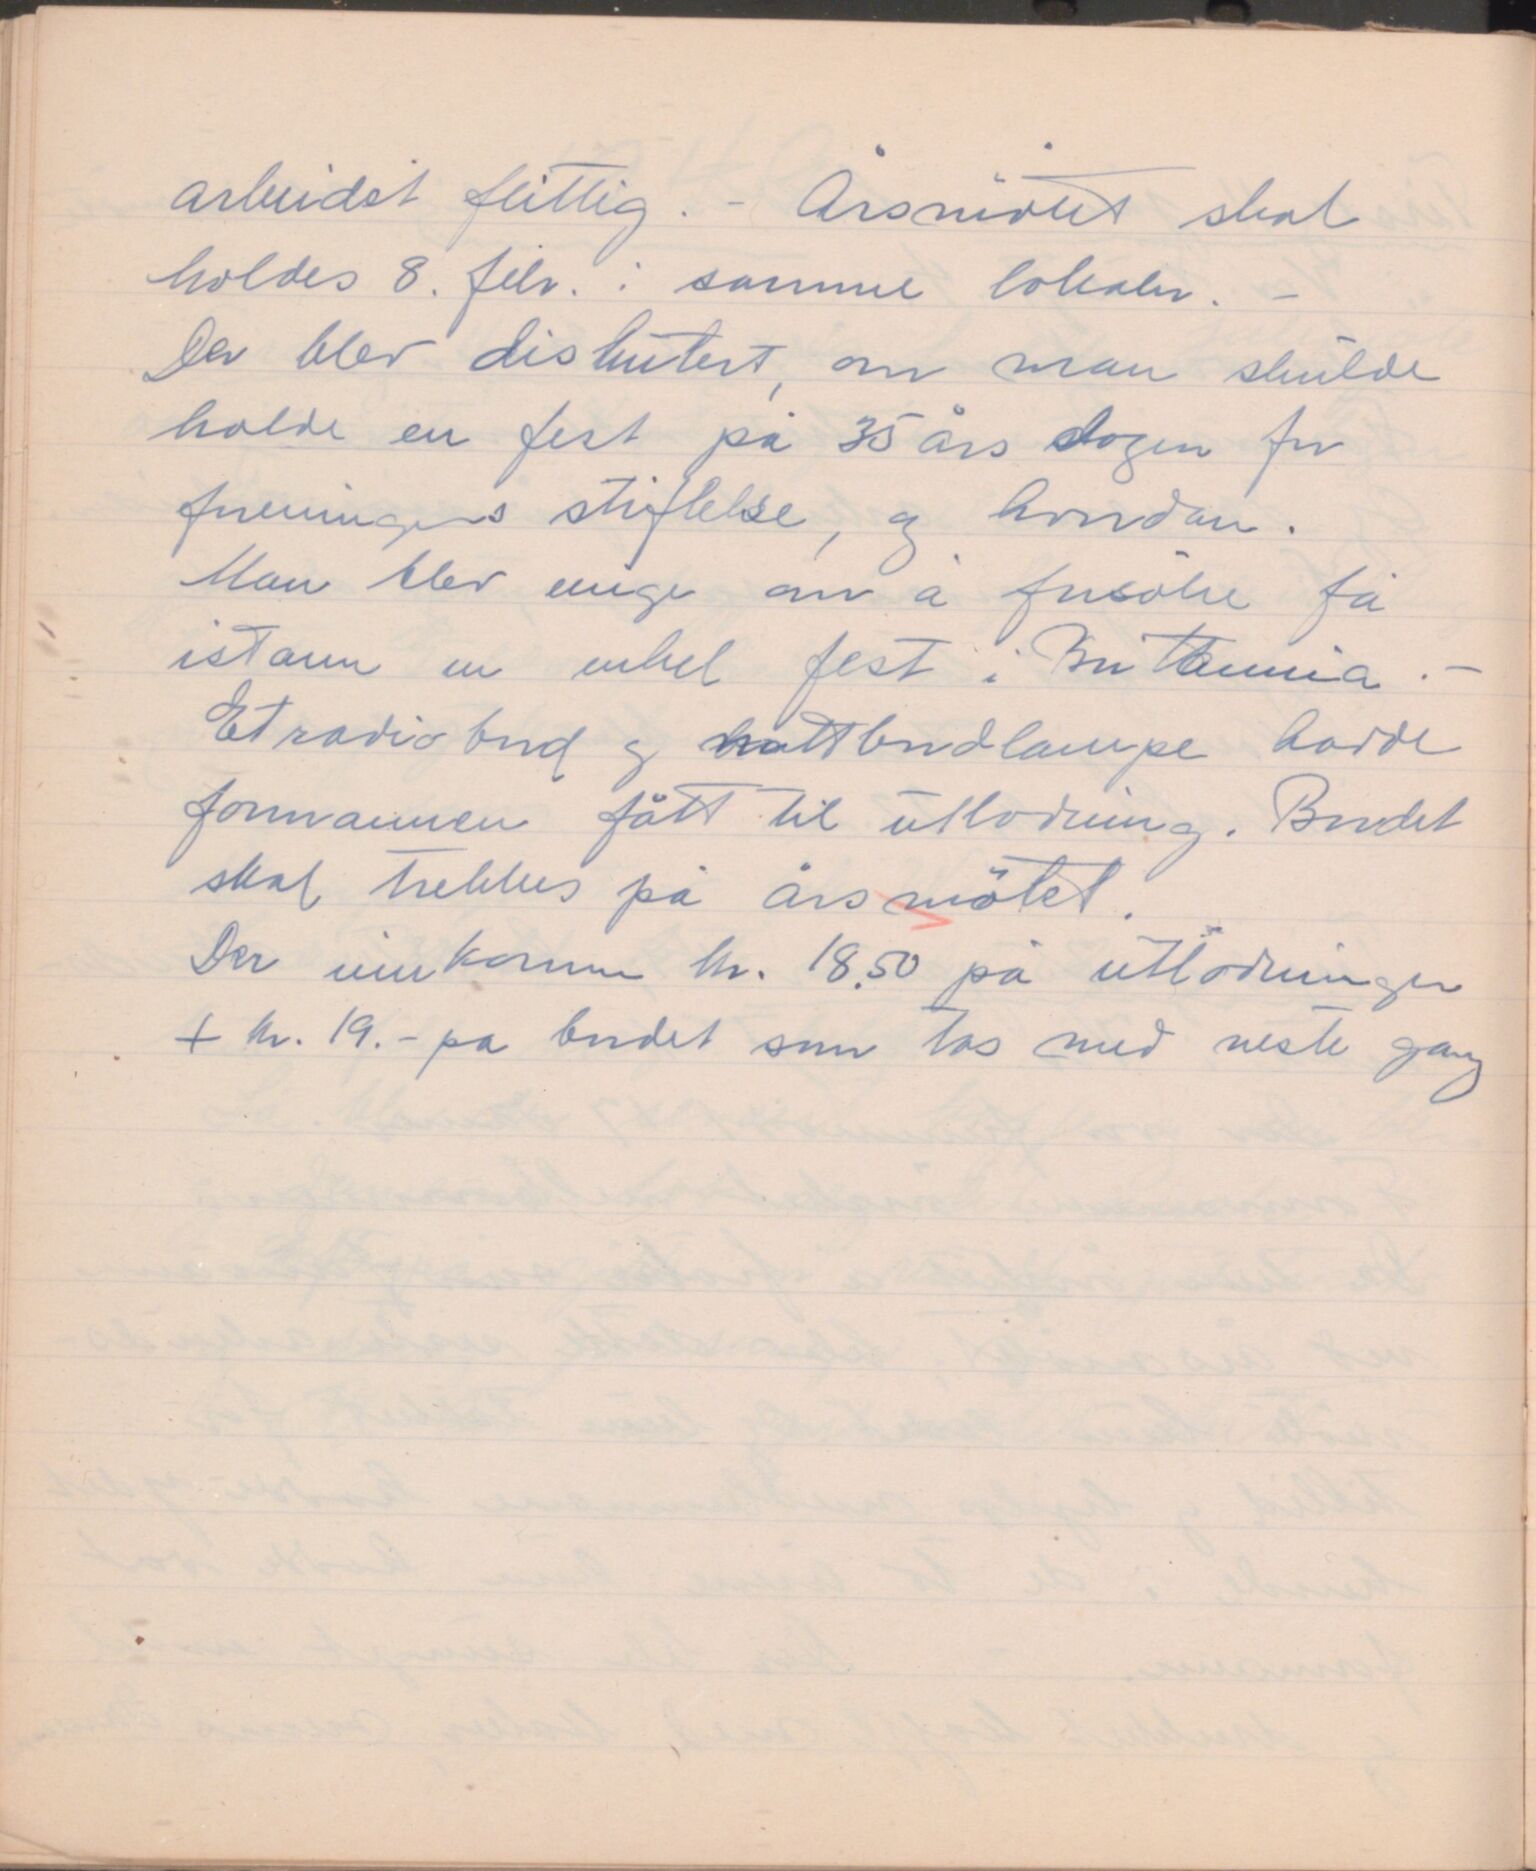 arbeidet flittig. - Årsmötet skal
holdes 8. febr. i samme lokaler. -
Der blev diskutert, om man skulde
holde en fest på 35 års dagen for
foreningens stiftelse, og hvordan.
Man blev enige om å forsöke få
istann en enkel fest i Brittannia. -
Et radiobord og nattbordlampe hadde
formannen fått til utlodning. Bordet
skal trekkes på årsmötet.
Der innkom kr. 18.50 på utlodningen
+ kr. 19.- pa bordet som tas med neste gang